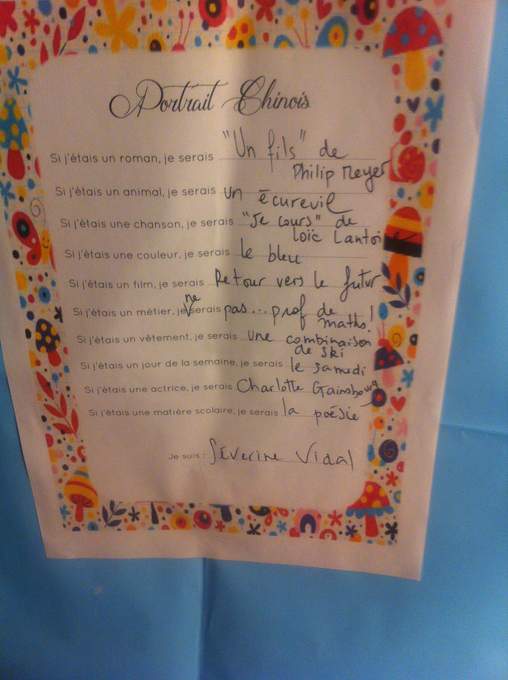 Portrait Chinois
Si j'étais un roman, je serais "Un fils" de
Philip Meyer
Si j'étais un animal, je serais un écureuil
Si j'étais une chanson, je serais "Je cours" de
Loïc Lantoi
Si j'étais une couleur, je serais le bleu
Si j'étais un film, je serais Retour vers le futur
Si j'étais un métier, je ne serais pas... prof de
maths!
Si j'étais un vêtement, je serais une combinaison
de ski
Si j'étais un jour de la semaine, je serais le samedi
Si j'étais une actrice, je serais Charlotte Gainsbourg
Si j'étais une matière scolaire, je serais la poésie
Je suis : Séverine Vidal